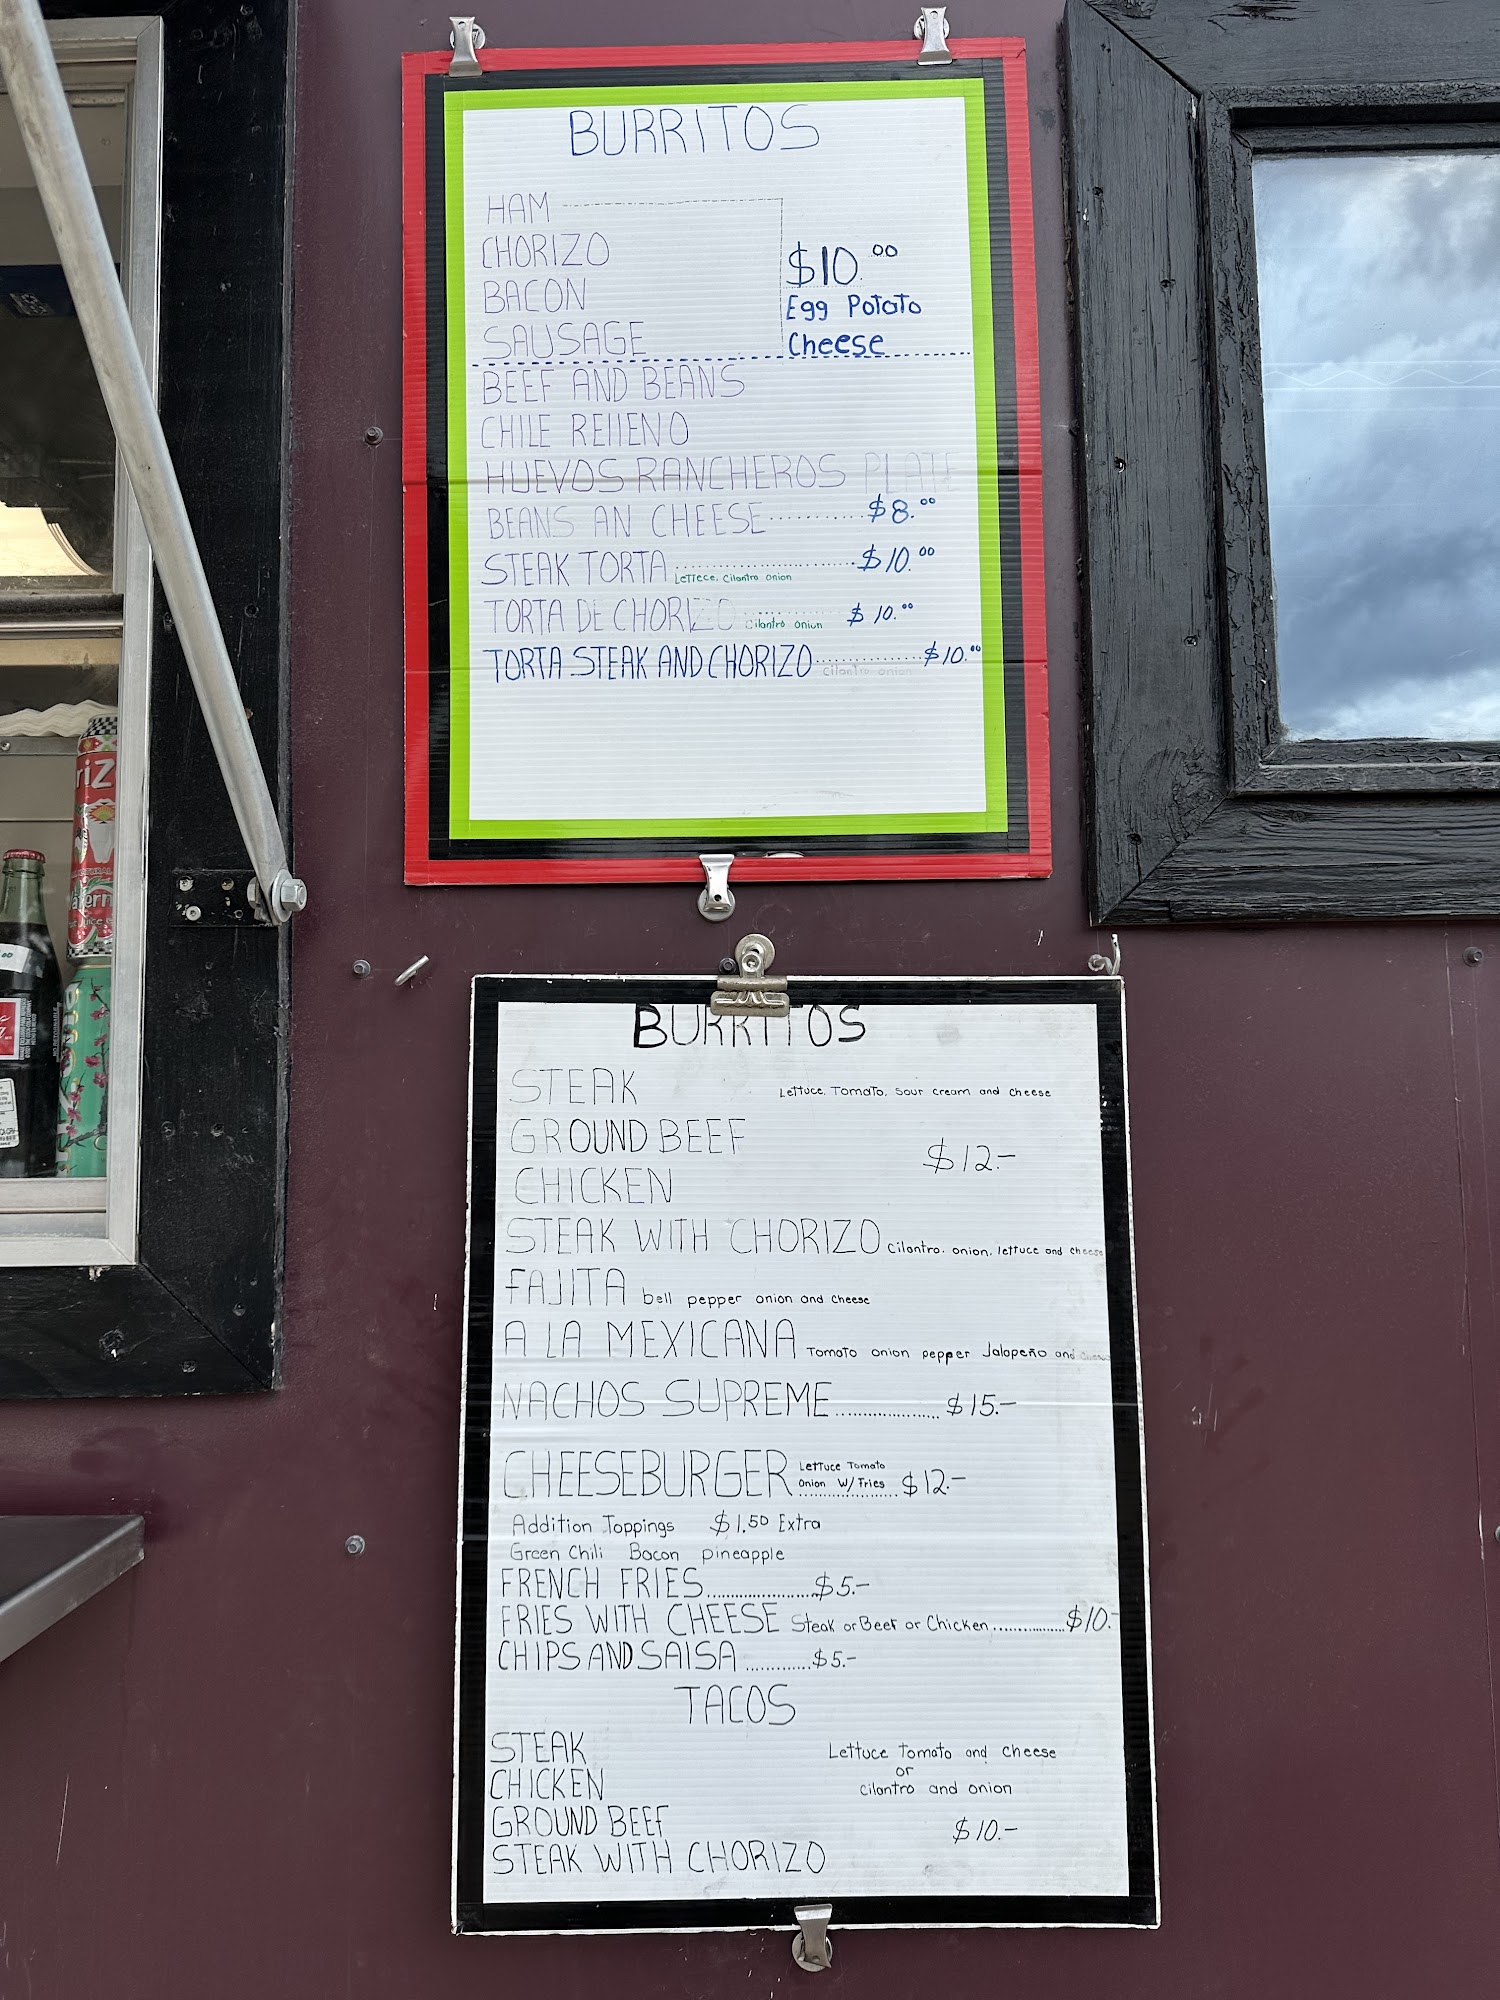 BURRITOS
HAM
CHORIZO
BACON
SAUSAGE
$10.00
Egg Potato
Cheese
BEEF AND BEANS
CHILE RELLENO
HUEVOS RANCHEROS PLATE
BEANS AN CHEESE .......... $8.00
STEAK TORTA Lettece, Cilantro onion .......... $10.00
TORTA DE CHORIZO Cilantro onion .......... $10.00
TORTA STEAK AND CHORIZO Cilantro onion .......... $10.00
BURRITOS
STEAK Lettuce, Tomato, Sour cream and cheese
GROUND BEEF
$12.-
CHICKEN
STEAK WITH CHORIZO Cilantro, onion, lettuce and cheese
FAJITA bell pepper onion and cheese
A LA MEXICANA Tomato onion pepper Jalapeño and cheese
NACHOS SUPREME .......... $15.-
CHEESEBURGER Lettuce Tomato
Onion W/Fries .......... $12.-
Addition Toppings $1.50 Extra
Green Chili Bacon pineapple
FRENCH FRIES .......... $5.-
FRIES WITH CHEESE Steak or Beef or Chicken .......... $10.-
CHIPS AND SALSA .......... $5.-
TACOS
STEAK
CHICKEN
GROUND BEEF
STEAK WITH CHORIZO
Lettuce Tomato and cheese
or
cilantro and onion
$10.-